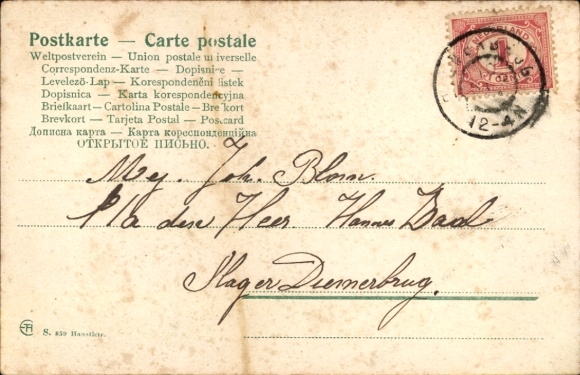 Postkarte — Carte postale
Weltpostverein — Union postale universelle
Correspondenz-Karte — Dopisnice —
Levelező-Lap — Korespondenčni listek
Dopisnica — Karta korespondencyjna
Briefkaart — Cartolina Postale — Brefkort
Brevkort — Tarjeta Postal — Postcard
Дописна карта — Карта кореспонденційна
ОТКРЫТОЕ ПИСЬМО.
NEDERLAND
1
12-4N
Mej. Joh. Blom.
p/a den Heer Hannes Baas
Slager Diemerbrug.
S. 859